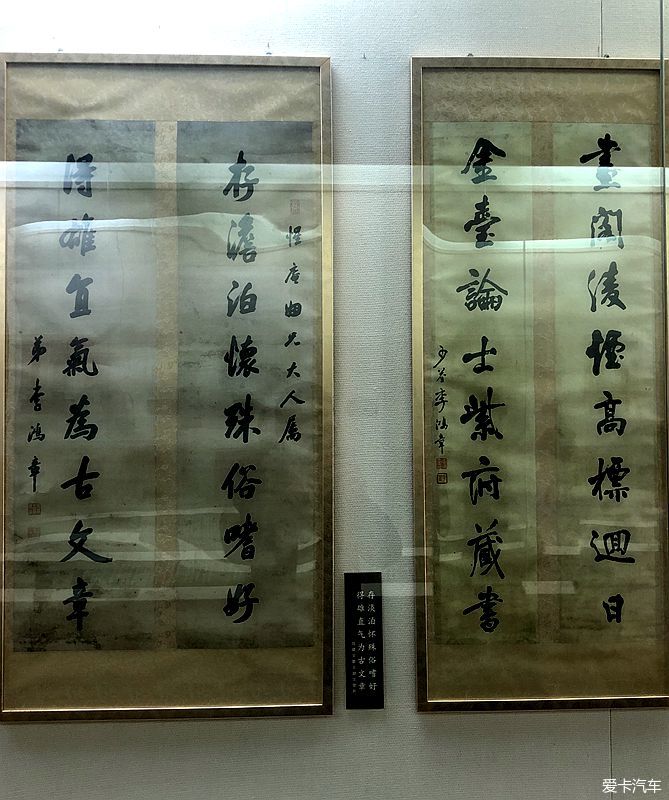 畫閣淩煙高標迴日
金臺論士紫府藏書
少荃李鴻章
惺庵姻兄大人屬
存澹泊懷殊俗嗜好
得雄直氣為古文章
弟李鴻章
存淡泊怀殊俗嗜好
得雄直气为古文章
爱卡汽车